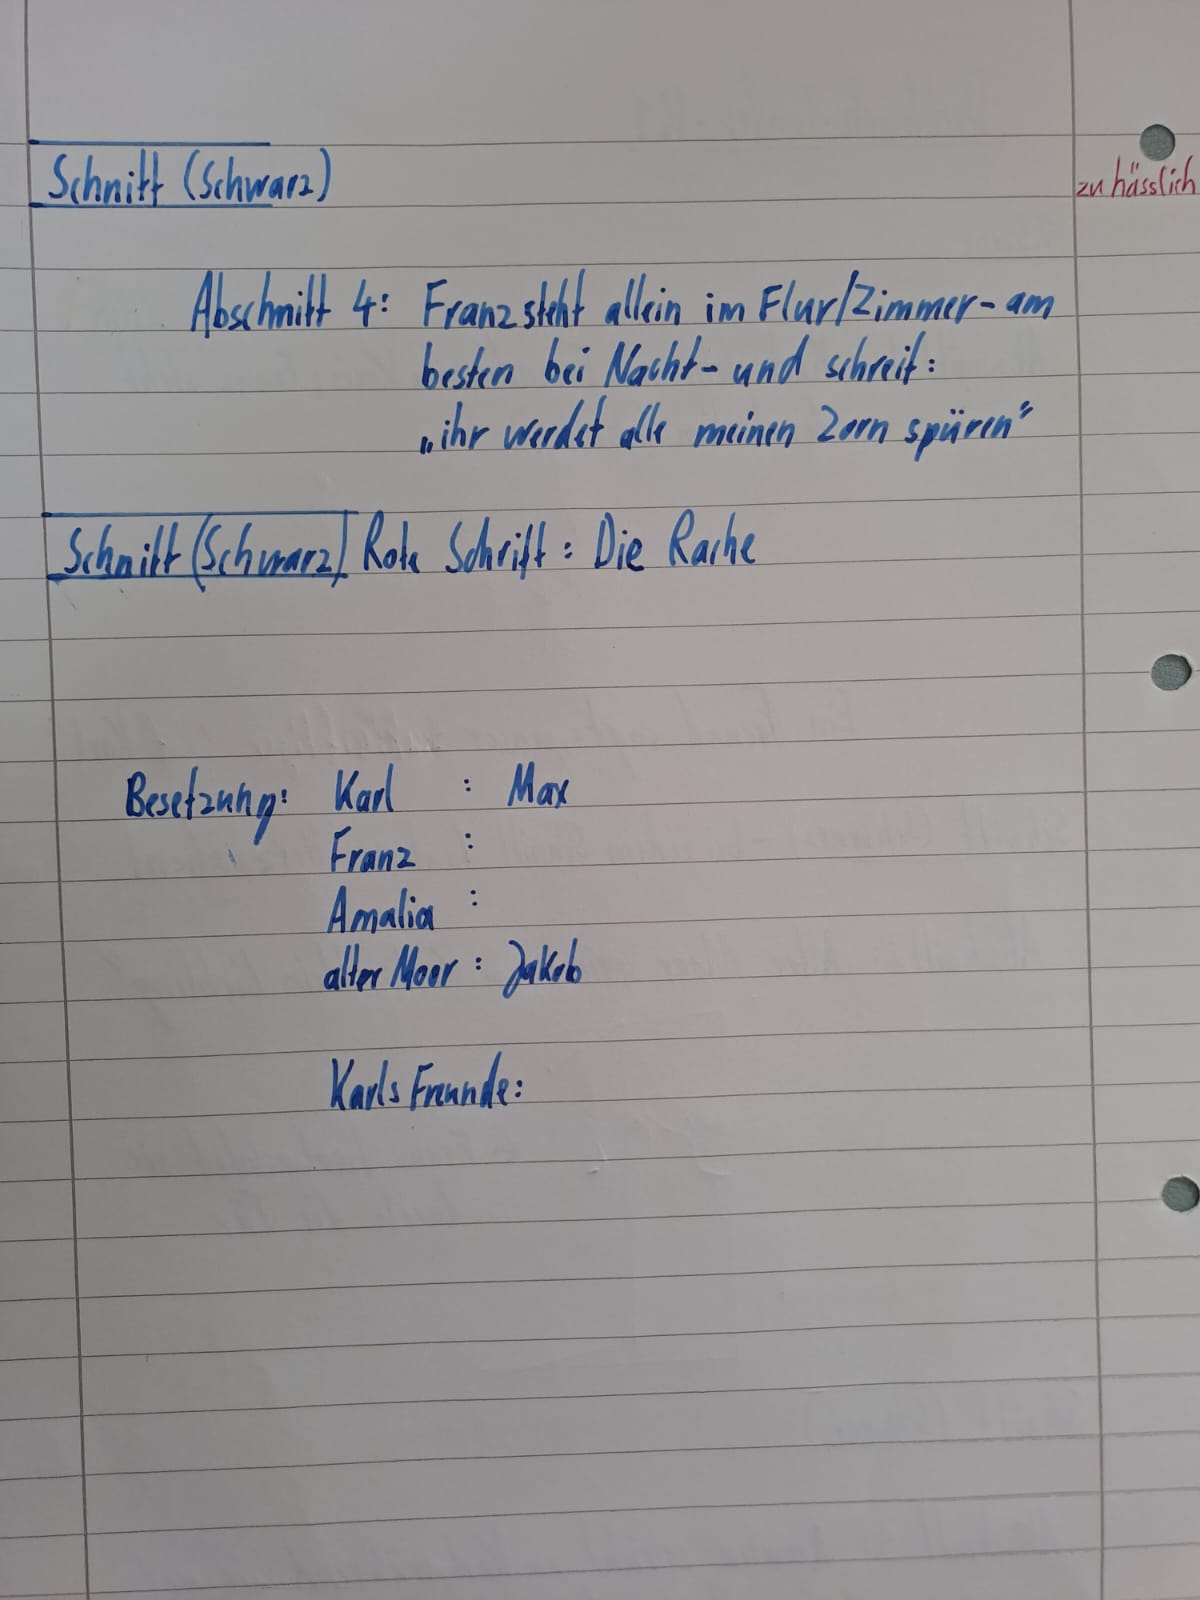 Schnitt (Schwarz)
zu hässlich
Abschnitt 4: Franz steht allein im Flur/Zimmer - am
besten bei Nacht - und schreit:
„ihr werdet alle meinen Zorn spüren"
Schnitt (Schwarz) Rote Schrift: Die Rache
Besetzung: Karl : Max
Franz :
Amalia :
alter Moor : Jakob
Karls Freunde: